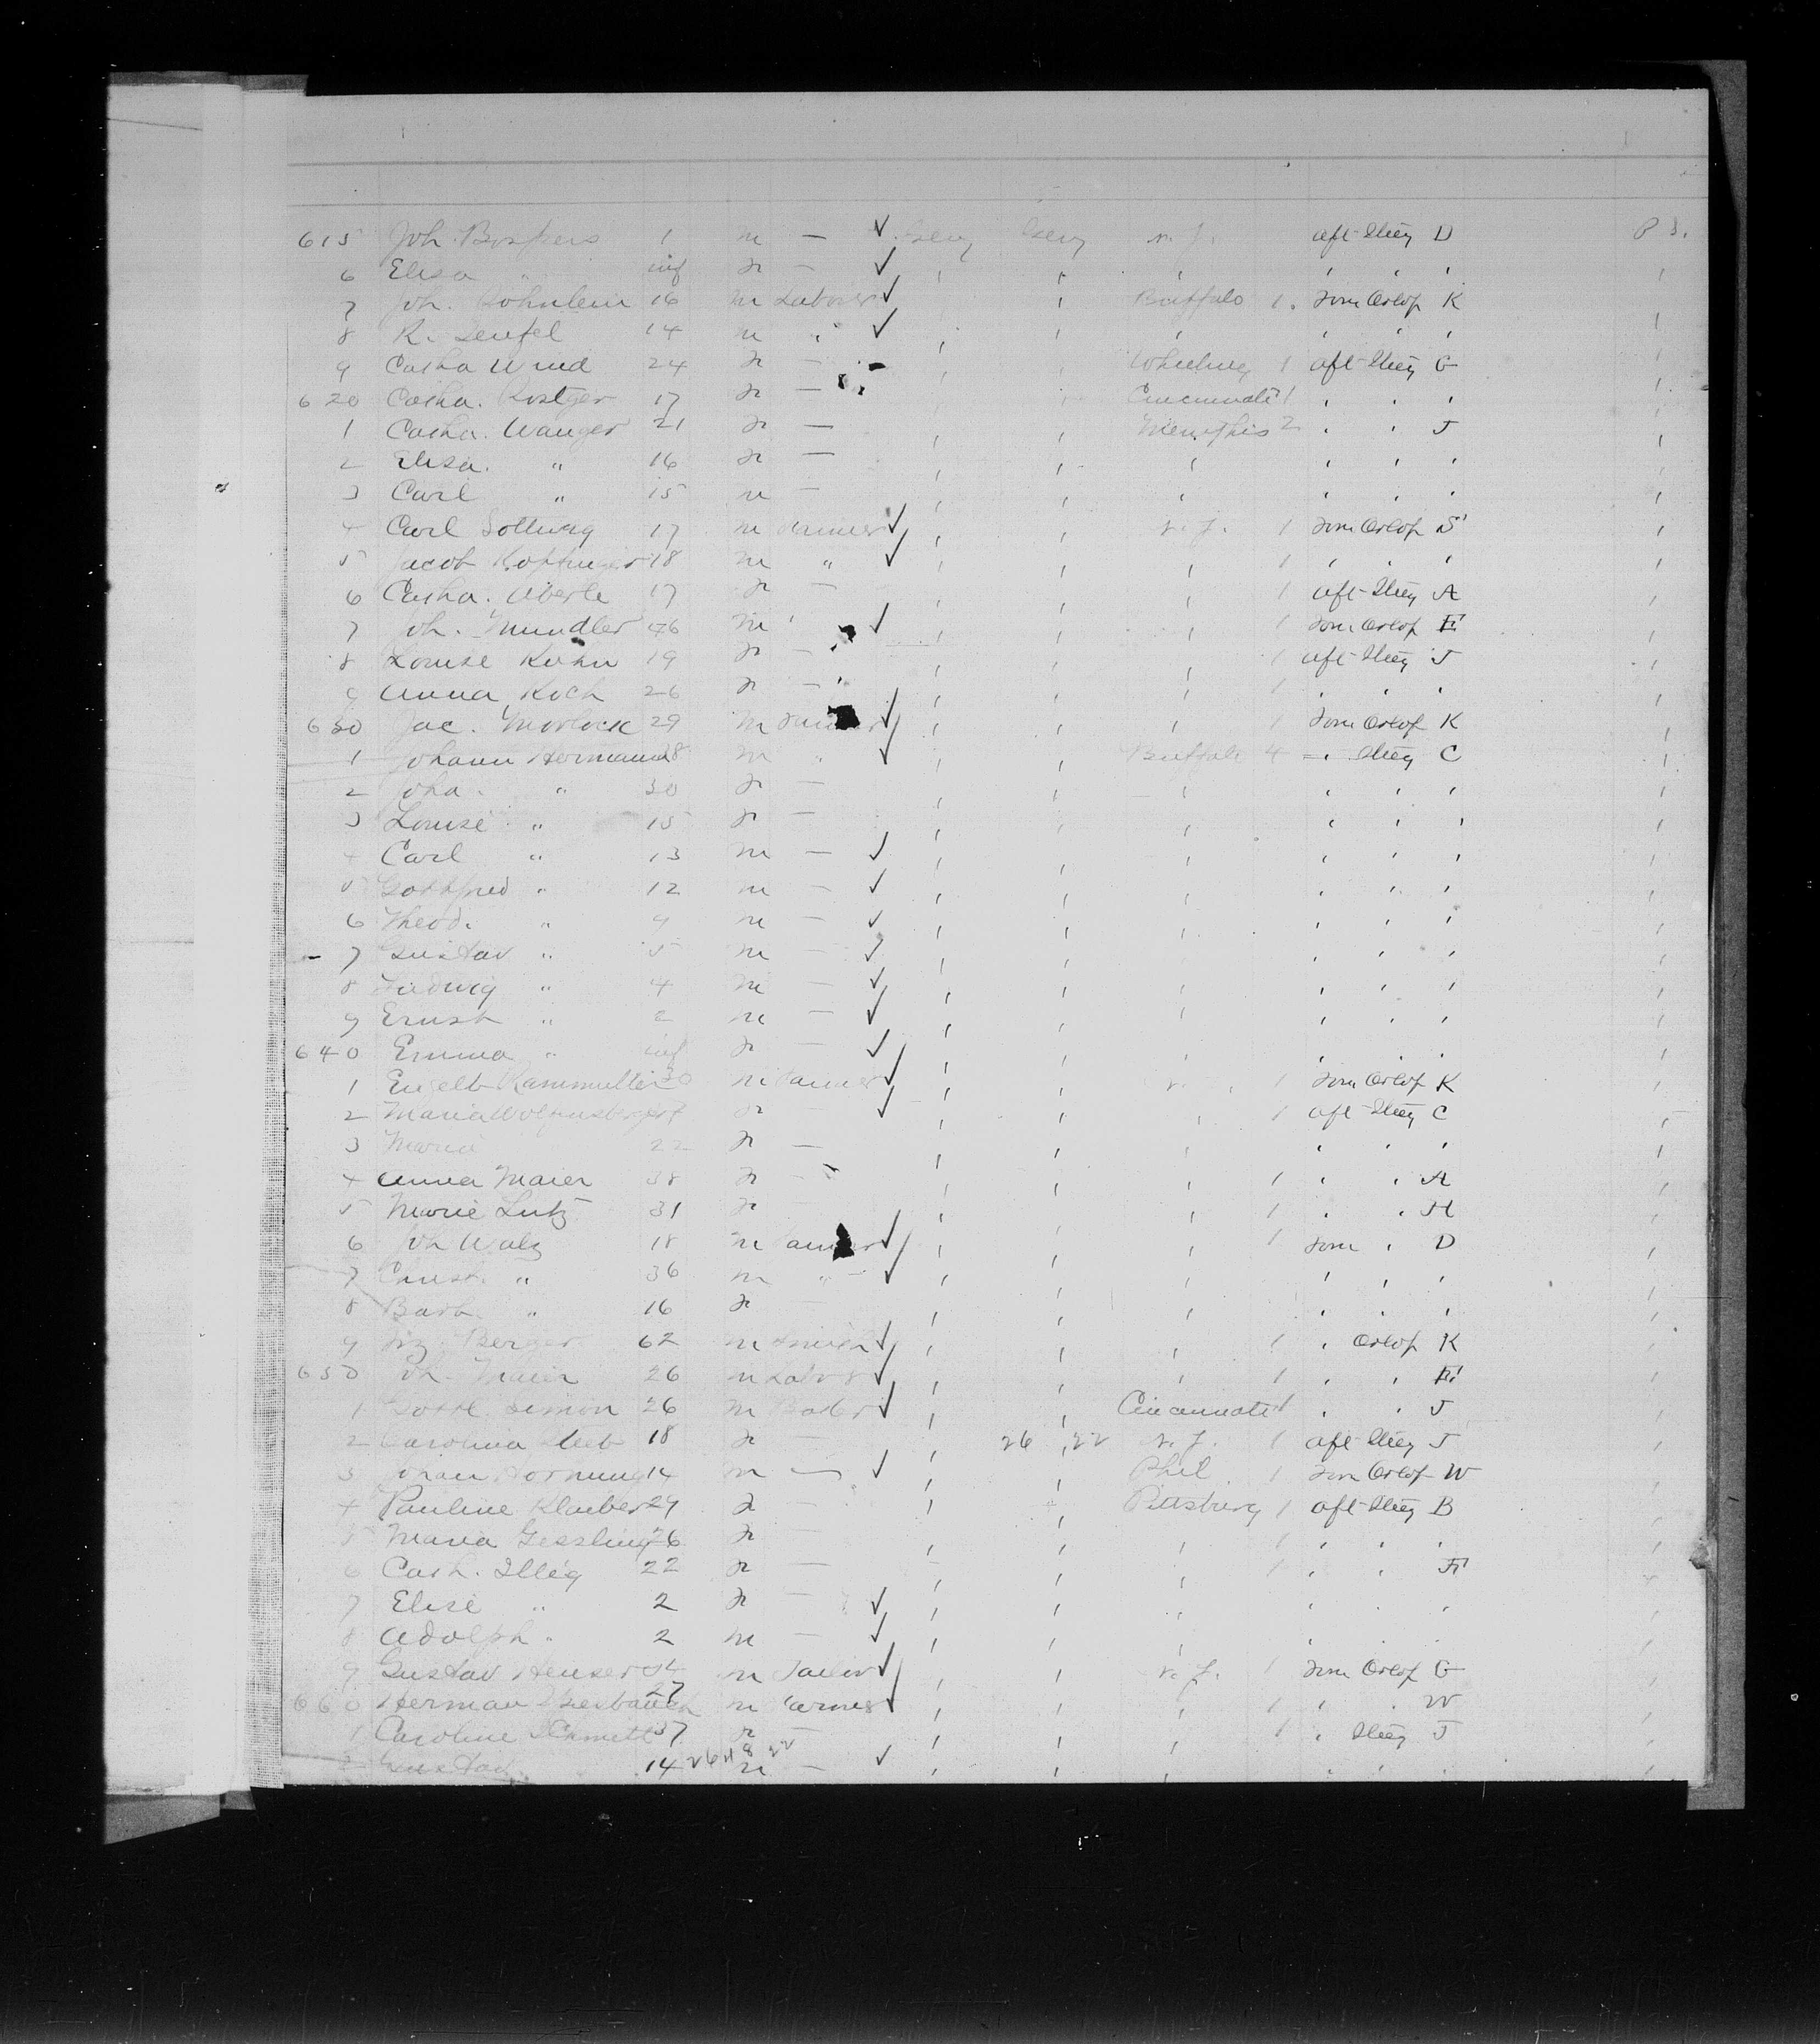 615 Joh. Bosfers 1 m — ✓ Gery Gery N.Y. aft Steeg D P S.
6 Elisa " inf f — ✓ ' ' ' ' ' ' '
7 Joh. 16 m Laborer ✓ ' Buffalo 1. Form Orlop K
8 R. Seufel 14 m " ✓ ' ' ' ' ' ' '
9 Catha Wind 24 f — ' ' Wheeling 1 aft Steeg G '
620 Catha. 17 f — ' Cincinnati 1 ' ' ' '
1 Catha. Wanger 21 f — ' ' Memphis 2 ' ' J '
2 Elisa. " 16 f — ' ' ' ' ' ' '
3 Carl " 15 m — ' ' ' ' ' ' '
4 Carl 17 m Farmer ✓ ' ' N.Y. 1 Form Orlop S '
5 Jacob 18 m " ✓ ' ' ' 1 ' ' ' '
6 Catha. Aberle 17 f — ' ' ' 1 aft Steeg A '
7 Joh. Mundler 46 m ' ✓ ' ' ' 1 Form Orlop E '
8 Louise Kuhn 19 f — ' ' 1 aft Steeg J '
9 Anna Koch 26 f — ' ' ' 1 ' ' ' '
630 Jac. Morlock 29 m ✓ ' ' ' 1 Form Orlop K '
1 Johann Hermann 38 m " ✓ ' ' Buffalo 4 ' Steeg C '
2 Joha. " 30 f — ' ' ' ' ' ' '
3 Louise " 15 f — ' ' ' ' ' ' '
4 Carl " 13 m — ✓ ' ' ' ' ' ' '
5 Gottfried " 12 m — ✓ ' ' ' ' ' ' '
6 Theod. " 9 m — ✓ ' ' ' ' ' ' '
7 Gustav " 5 m — ✓ ' ' ' ' ' '
8 Ludwig " 4 m — ✓ ' ' ' ' ' ' '
9 Ernst " 2 m — ✓ ' ' ' ' ' ' '
640 Emma " inf f — ✓ ' ' ' ' ' ' '
1 Engelb Rammulter 30 m Farmer ✓ ' ' N. 1 Form Orlop K '
2 Maria f ✓ ' ' ' 1 aft Steeg C '
3 Maria 22 f — ' ' ' ' ' '
4 Anna Maier 38 f — ' ' ' 1 ' ' A '
5 Marie Lutz 31 f ' ' ' 1 ' ' H '
6 Joh Walz 18 m Farmer ✓ ' ' ' 1 Form ' D '
7 Christ. " 36 m " ✓ ' ' ' ' ' ' '
8 Barb. " 16 f ' ' ' ' ' ' '
9 Berger 62 m Smith ✓ ' ' ' 1 ' Orlop K '
650 Joh. Maier 26 m Labor ✓ ' ' ' 1 ' ' E '
1 Gottl. Simon 26 m Baker ✓ ' ' Cincinnati 1 ' ' J '
2 Carolina 18 f — ' 26 22 N.Y. 1 aft Steeg J '
3 Johan Hornung 14 m — ✓ ' ' Phil 1 Form Orlop W '
4 Pauline Klaiber 24 f — ' ' Pittsburg 1 aft Steeg B '
5 Maria Gessling 26 f — ' ' ' 1 ' ' ' '
6 Cath. Illig 22 f — ' ' ' 1 ' ' F '
7 Elise " 2 f — ✓ ' ' ' ' ' ' '
8 Adolph " 2 m — ✓ ' ' ' ' ' ' '
9 Gustav Heuser 34 m Tailor ✓ ' ' N.Y. 1 Form Orlop G '
660 Herman 27 m Farmer ✓ ' ' ' 1 ' ' W '
1 Caroline Schmett 37 f — ' ' ' 1 ' Steeg J '
2 Gustav 14 26 48 22 m — ✓ ' ' ' ' ' ' '